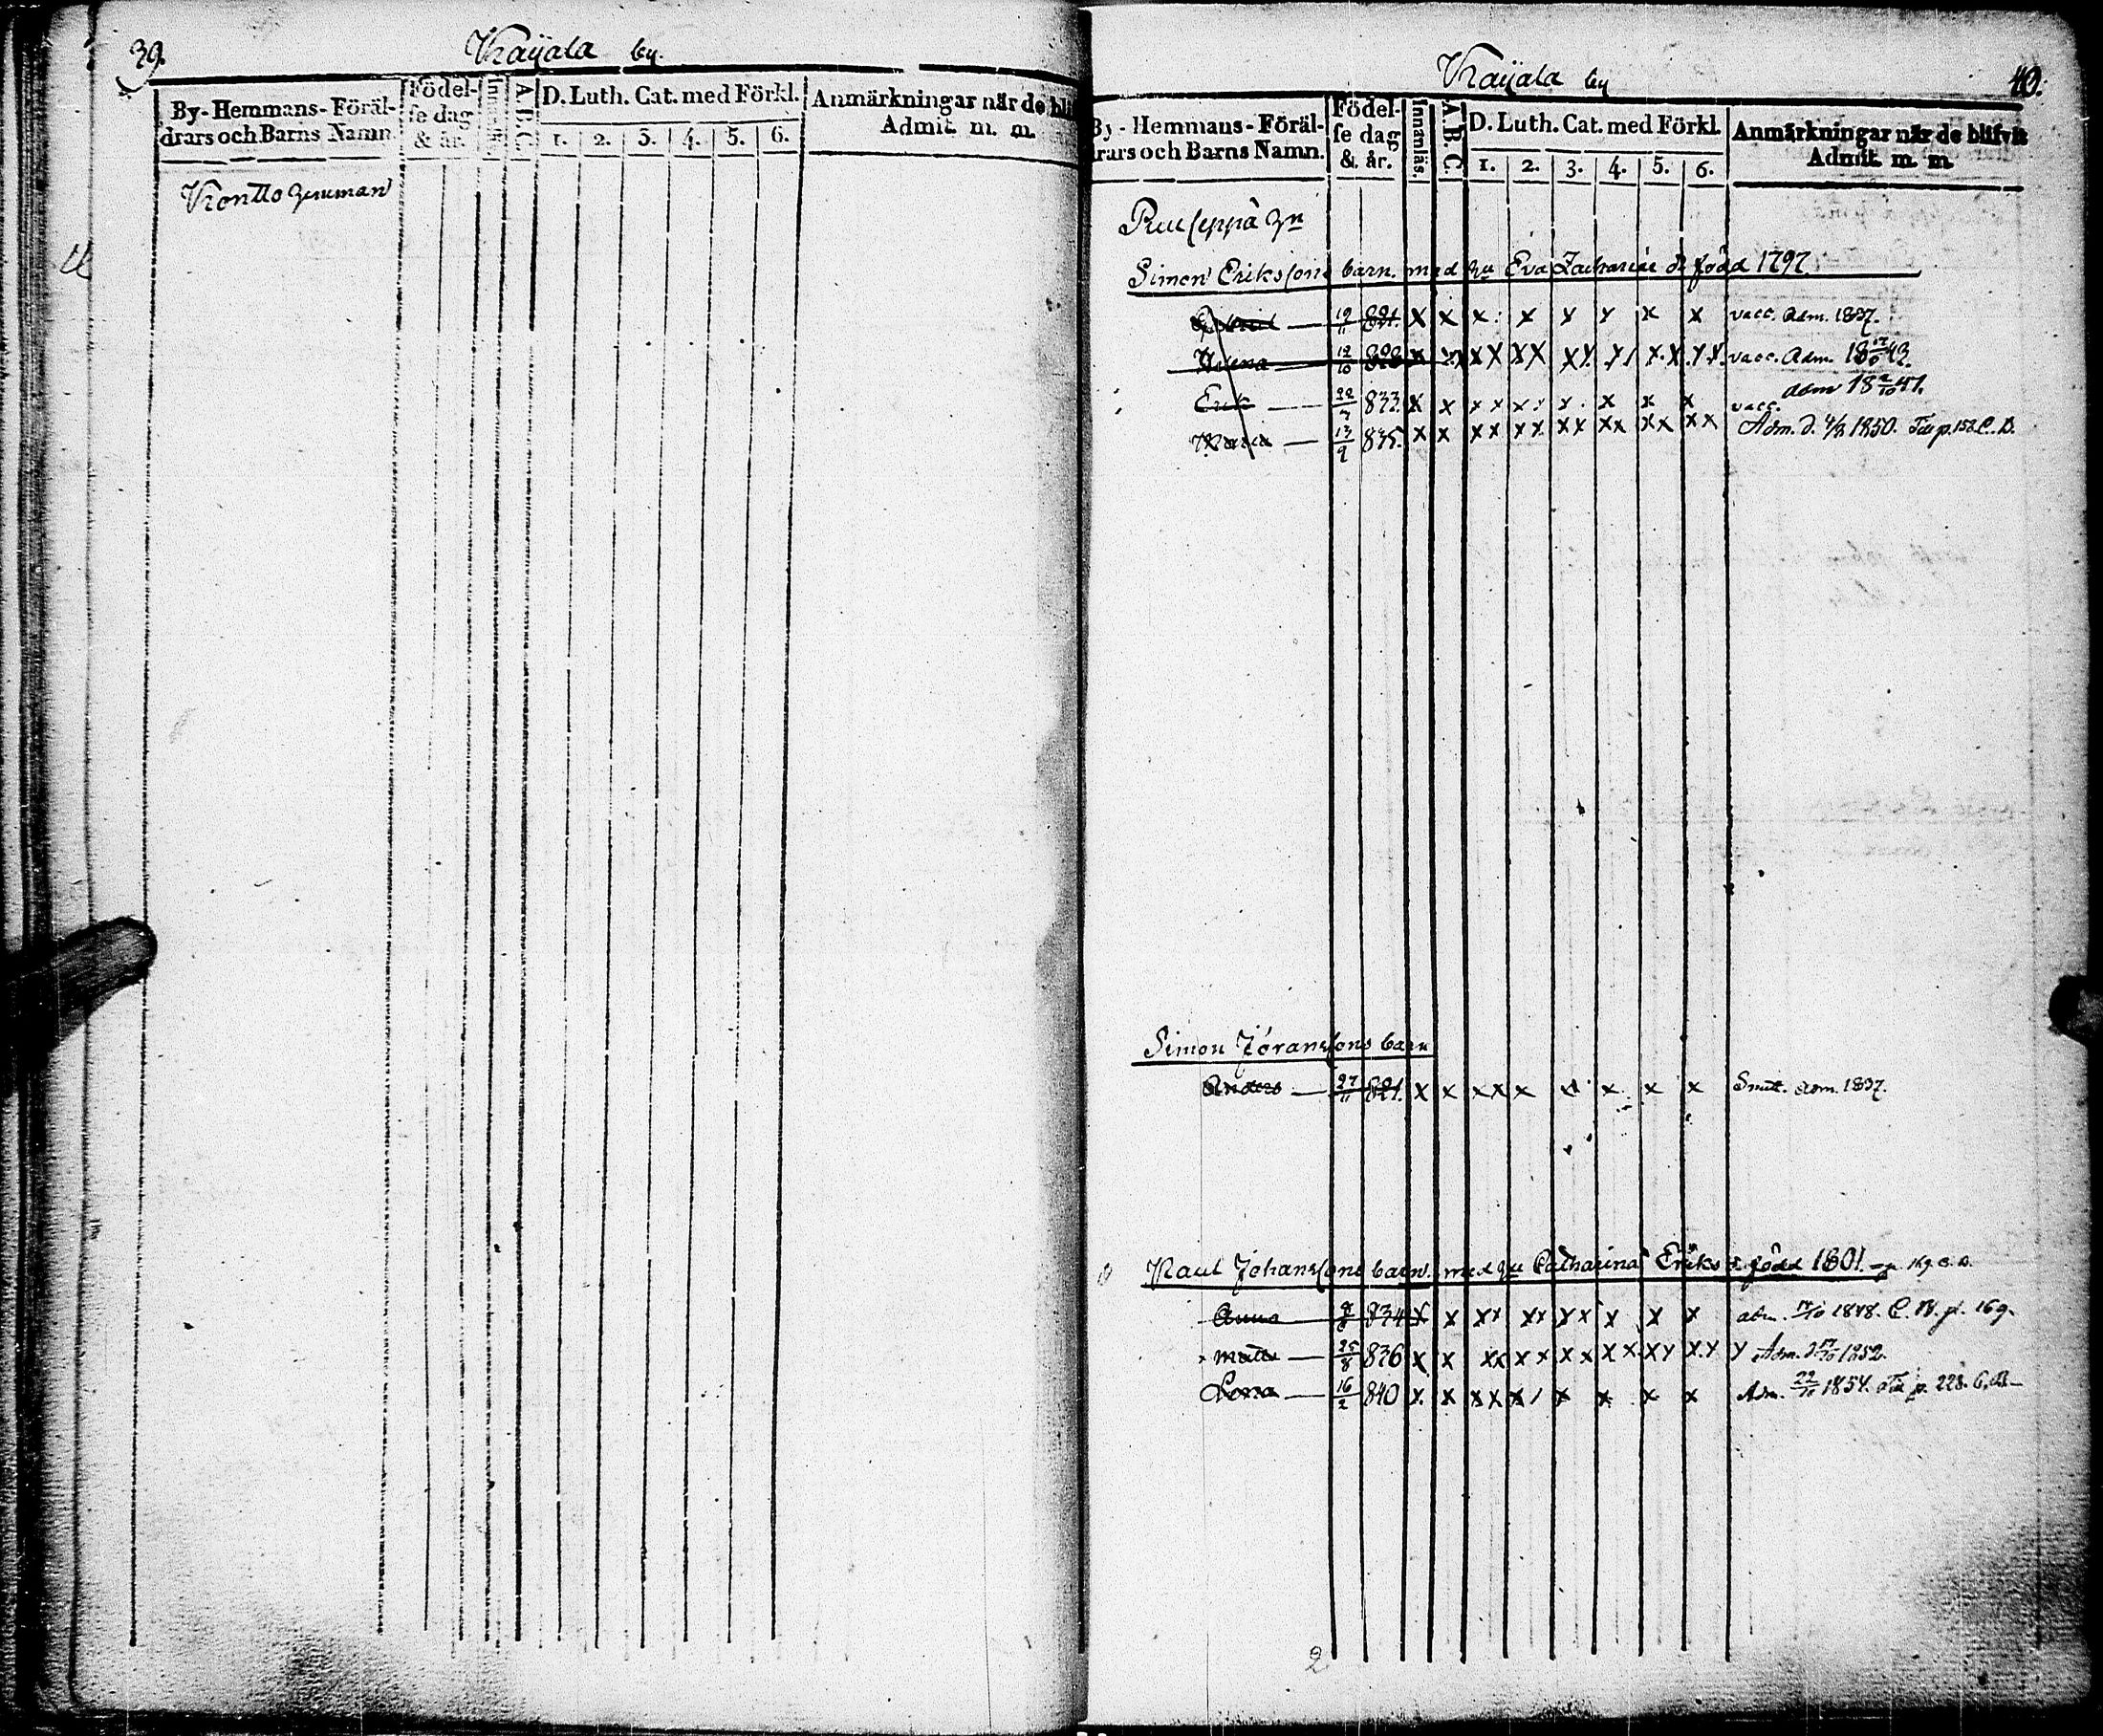 39.
Kaijala by.
By-Hemmans-Föräl-
drars och Barns Namn.
Födel-
se dag
& år.
A. B. C.
D. Luth. Cat. med Förkl.
1. 2. 3. 4. 5. 6.
Anmärkningar när de bli
Admit. m. m.
Kontto hemman
40.
Kaijala by
By-Hemmans-Föräl-
drars och Barns Namn.
Födel-
se dag
& år.
Innanläs.
A. B. C.
D. Luth. Cat. med Förkl.
1. 2. 3. 4. 5. 6.
Anmärkningar när de blifvit
Admit. m. m.
Simon Erikssons barn. med hu Eva Zachariae dr född 1797.
19/11 821. x x x x x x x x vacc. adm. 1837.
Helena 12/10 x x x x x x x x x x x x vacc. adm. 1843.
Erik 22/7 833. x x x x x x x x x vacc. adm 18 2/10 47.
Maria 13/9 835. x x x x x x x x x x x x x x Adm. d. 1850. p. 152. C. B.
Simon Jöranssons barn
Anders 27/11 821. x x x x x x x x x adm. 1837.
Paul Johanssons barn. med hu Catharina Eriks d. född 1801.
Anna 834 x x x x x x x x x x x adm. 1848. C. B. p. 169.
Matts 25/8 836 x x x x x x x x x x x x x x Adm. 1852.
Lovisa 16/2 840 x. x x x x x x x x Adm. 22/10 1854. p. 228. C. B.
2